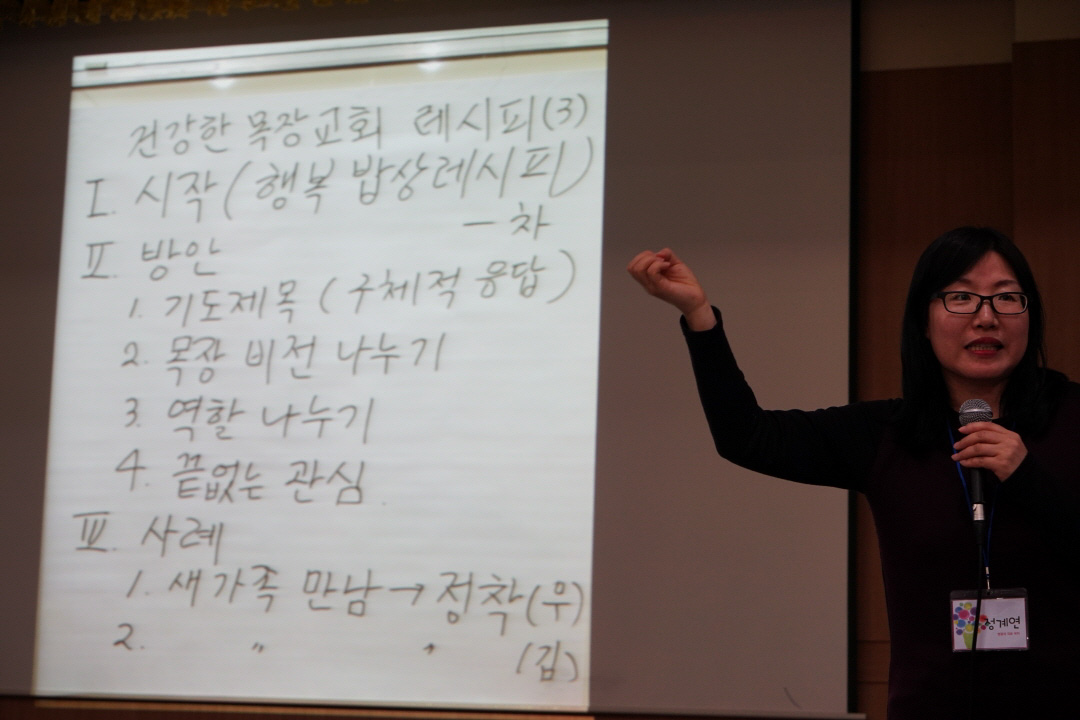 건강한 목장교회 레시피(3)
I. 시작(행복 밥상레시피)
- 차
II. 방안
1. 기도제목 (구체적 응답)
2. 목장 비전 나누기
3. 역할 나누기
4. 끝없는 관심.
III. 사례
1. 새가족 만남 → 정착(우)
2. 〃 〃 (김)
정계연